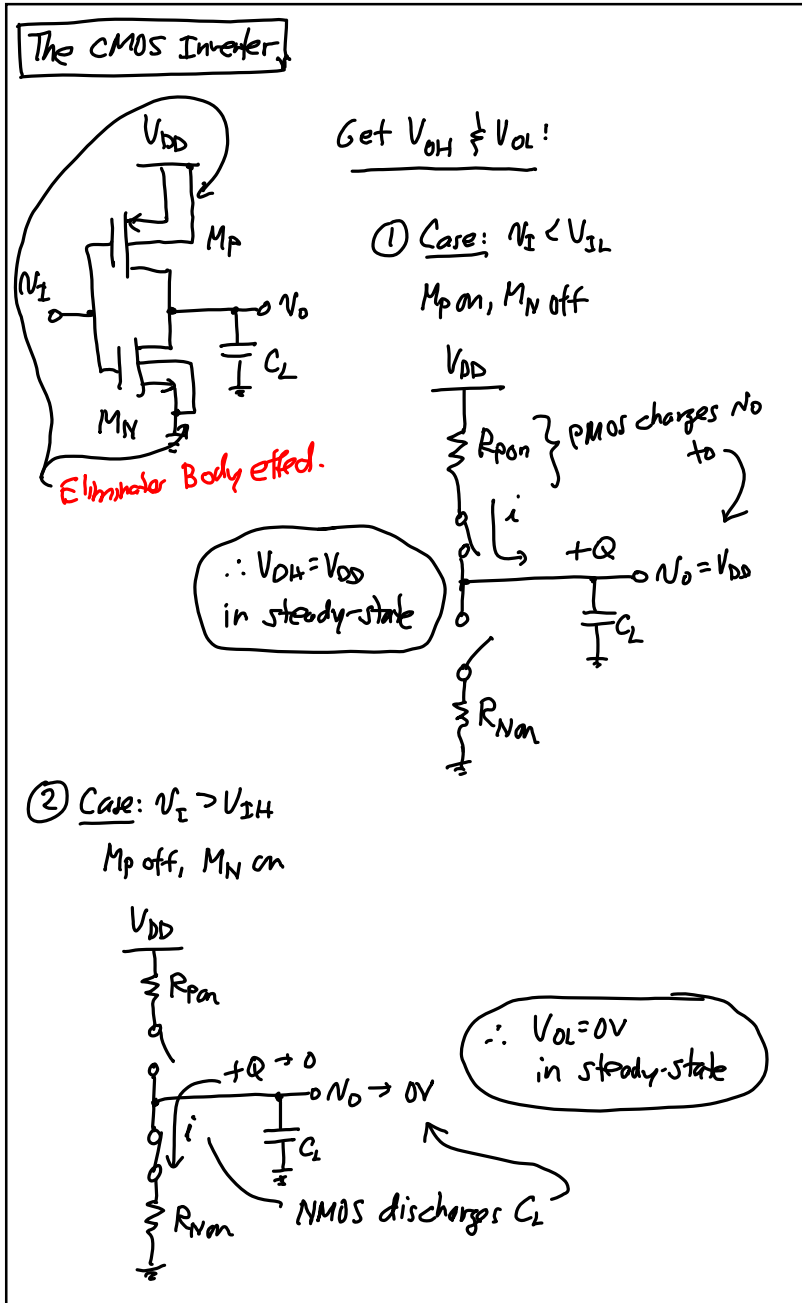 The CMOS Inverter
Get V_OH & V_OL:
V_DD
M_P
v_I
v_O
C_L
M_N
Eliminates Body effect.
① Case: v_I < V_IL
M_P on, M_N off
V_DD
R_Pon } PMOS charges v_O
to
i
+Q
v_O = V_DD
C_L
R_Non
∴ V_OH = V_DD
in steady-state
② Case: v_I > V_IH
M_P off, M_N on
V_DD
R_Pon
+Q → 0
v_O → 0V
i
C_L
R_Non
NMOS discharges C_L
∴ V_OL = 0V
in steady-state